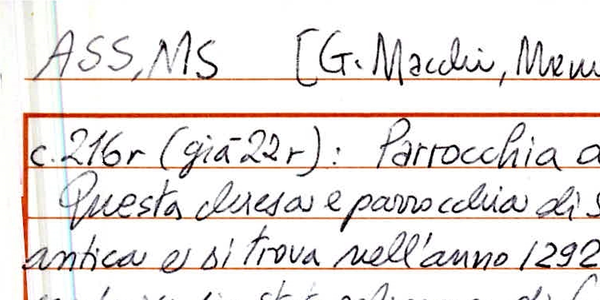 ASS, MS [G. Macchi, Mem
c. 216r (già 22r): Parrocchia d
Questa chiesa e parrocchia di S
antica e si trova nell'anno 1292